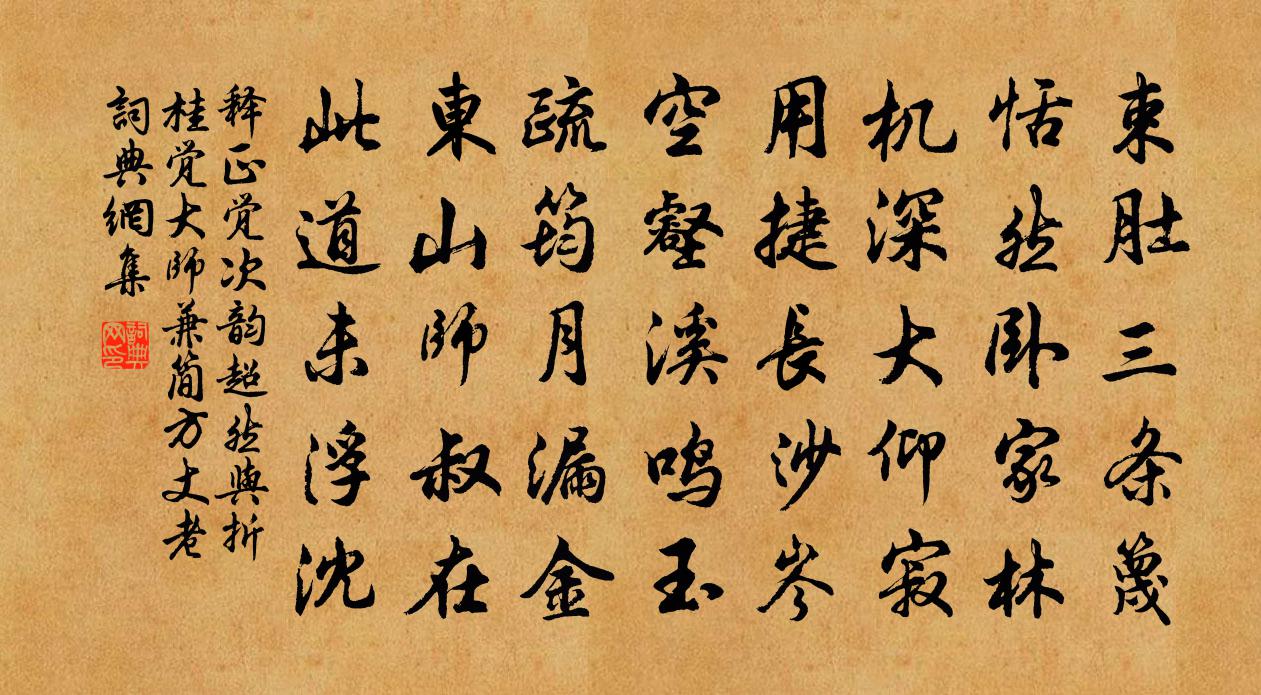 束肚三条篾
恬然卧家林
机深大仰寂
用捷长沙岑
空壑溪鸣玉
疏筠月漏金
東山師叔在
此道未浮沈
释正觉次韵超然與折
桂觉大师兼简方丈老
詞典網集